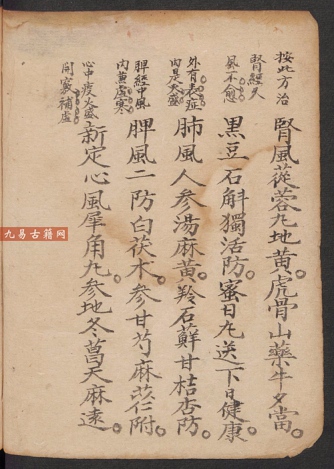 按此方治
腎經久
風不愈
腎風蓯蓉九地黃虎骨山藥牛夕當
黑豆石斛獨活防蜜日九送下日健康
外有表症
內是火盛
肺風人參湯麻黃羚石蘇甘桔杏防
脾經中風
內兼虛寒
脾風二防白茯木參甘芍麻苡仁附
心中痰火盛
開竅補虛
新定心風犀角九參地冬菖天麻遠
九易古籍网